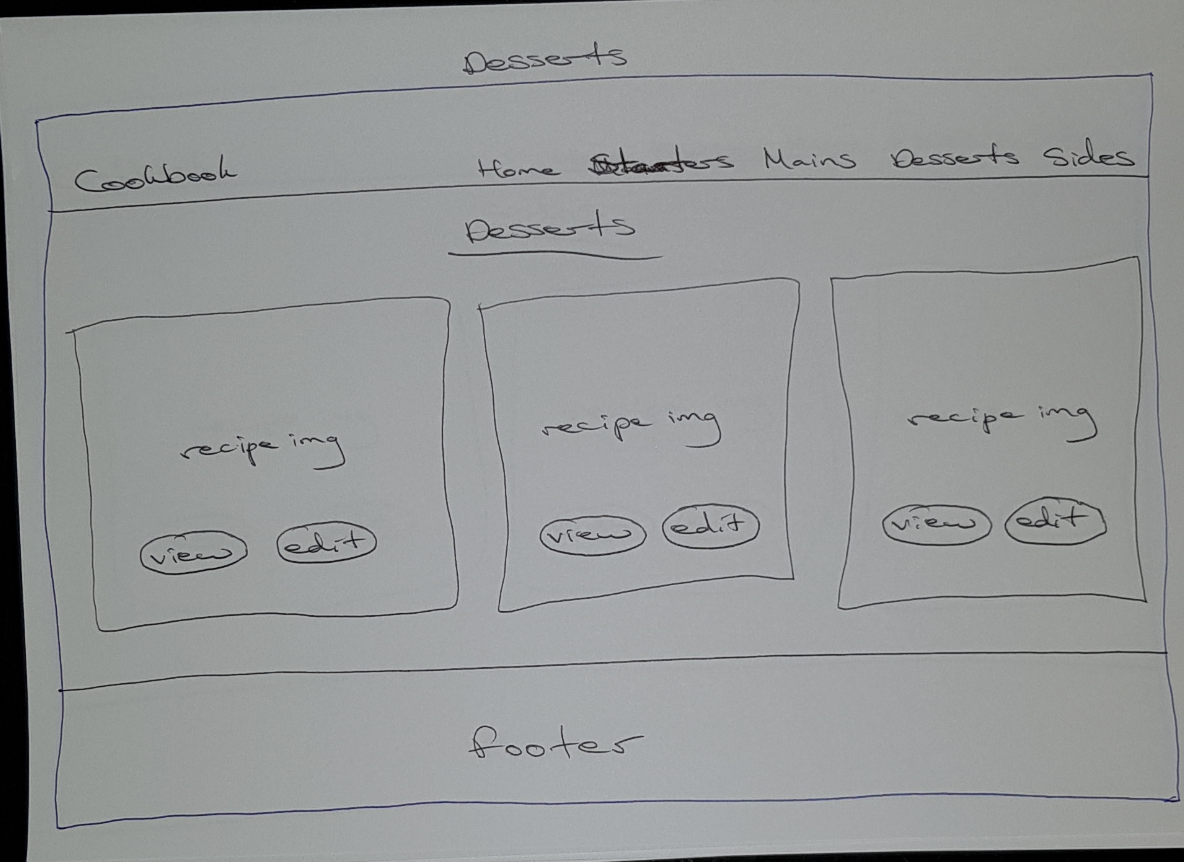 Desserts
Cookbook Home Starters Mains Desserts Sides
Desserts
recipe img recipe img recipe img
view edit view edit view edit
footer